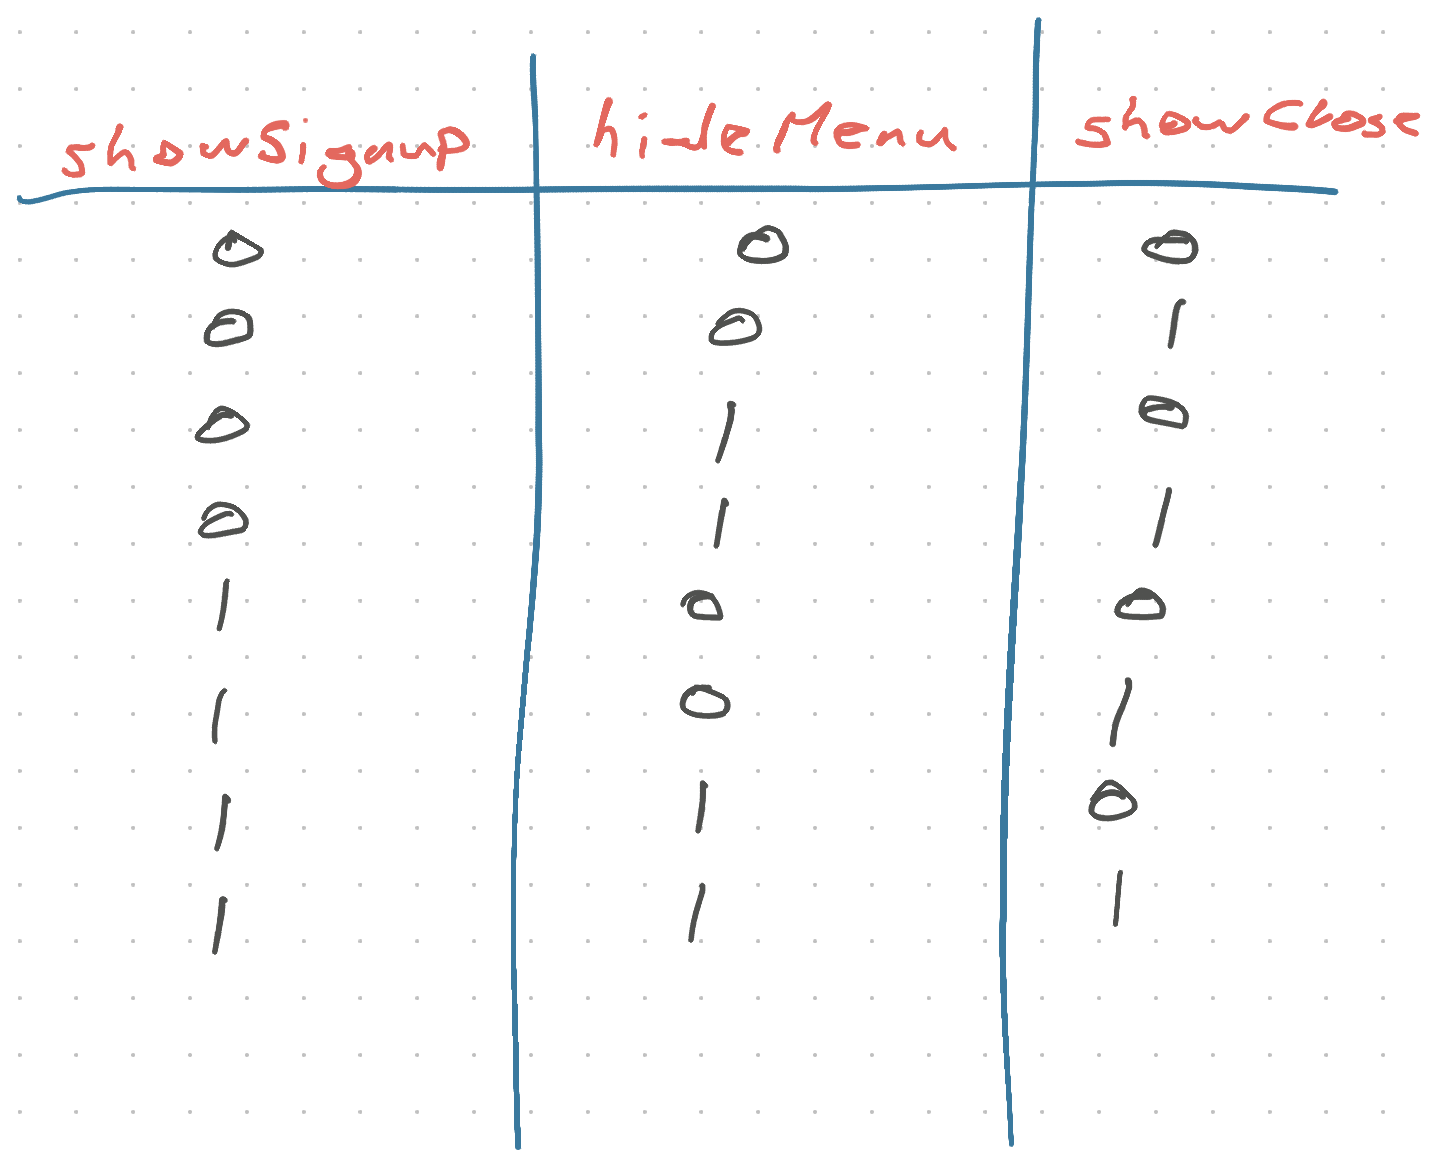 showSignup hideMenu showClose
0 0 0
0 0 1
0 1 0
0 1 1
1 0 0
1 0 1
1 1 0
1 1 1